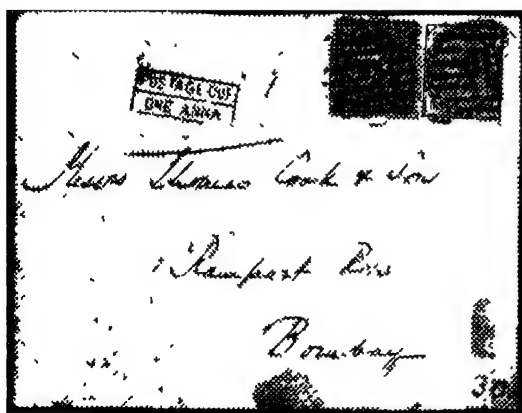 POSTAGE DUE
ONE ANNA
Messrs Thomas Cook & Son
Rampart Row
Bombay